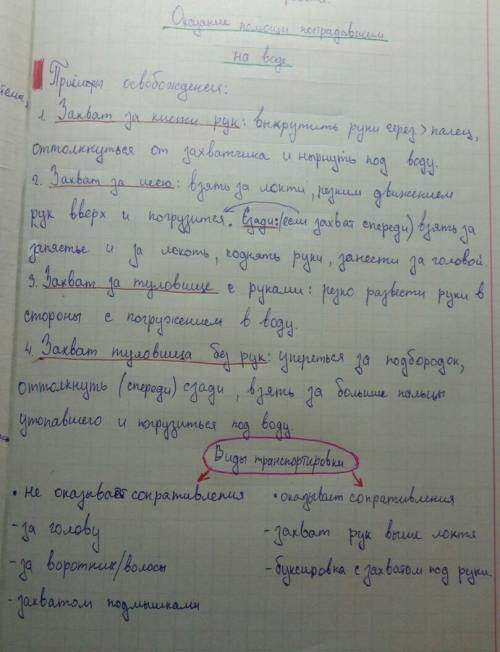 Оказание помощи пострадавшим
на воде
Приёмы освобождения:
1. Захват за кисти рук: выкрутить руки через > палец,
оттолкнуться от захватчика и нырнуть под воду.
2. Захват за шею: взять за локти, резким движением
рук вверх и погрузится. Сзади: (если захват спереди) взять за
запястье и за локоть, поднять руки, занести за головой.
3. Захват за туловище с руками: резко развести руки в
стороны с погружением в воду.
4. Захват туловища без рук: упереться за подбородок,
оттолкнуть (спереди) сзади, взять за большие пальцы
утопавшего и погрузиться под воду.
Виды транспортировки
• не оказывает сопративления
• оказывает сопративления
- за голову
- захват рук выше локтя
- за воротник/волосы
- буксировка с захватом под руки.
- захватом подмышками